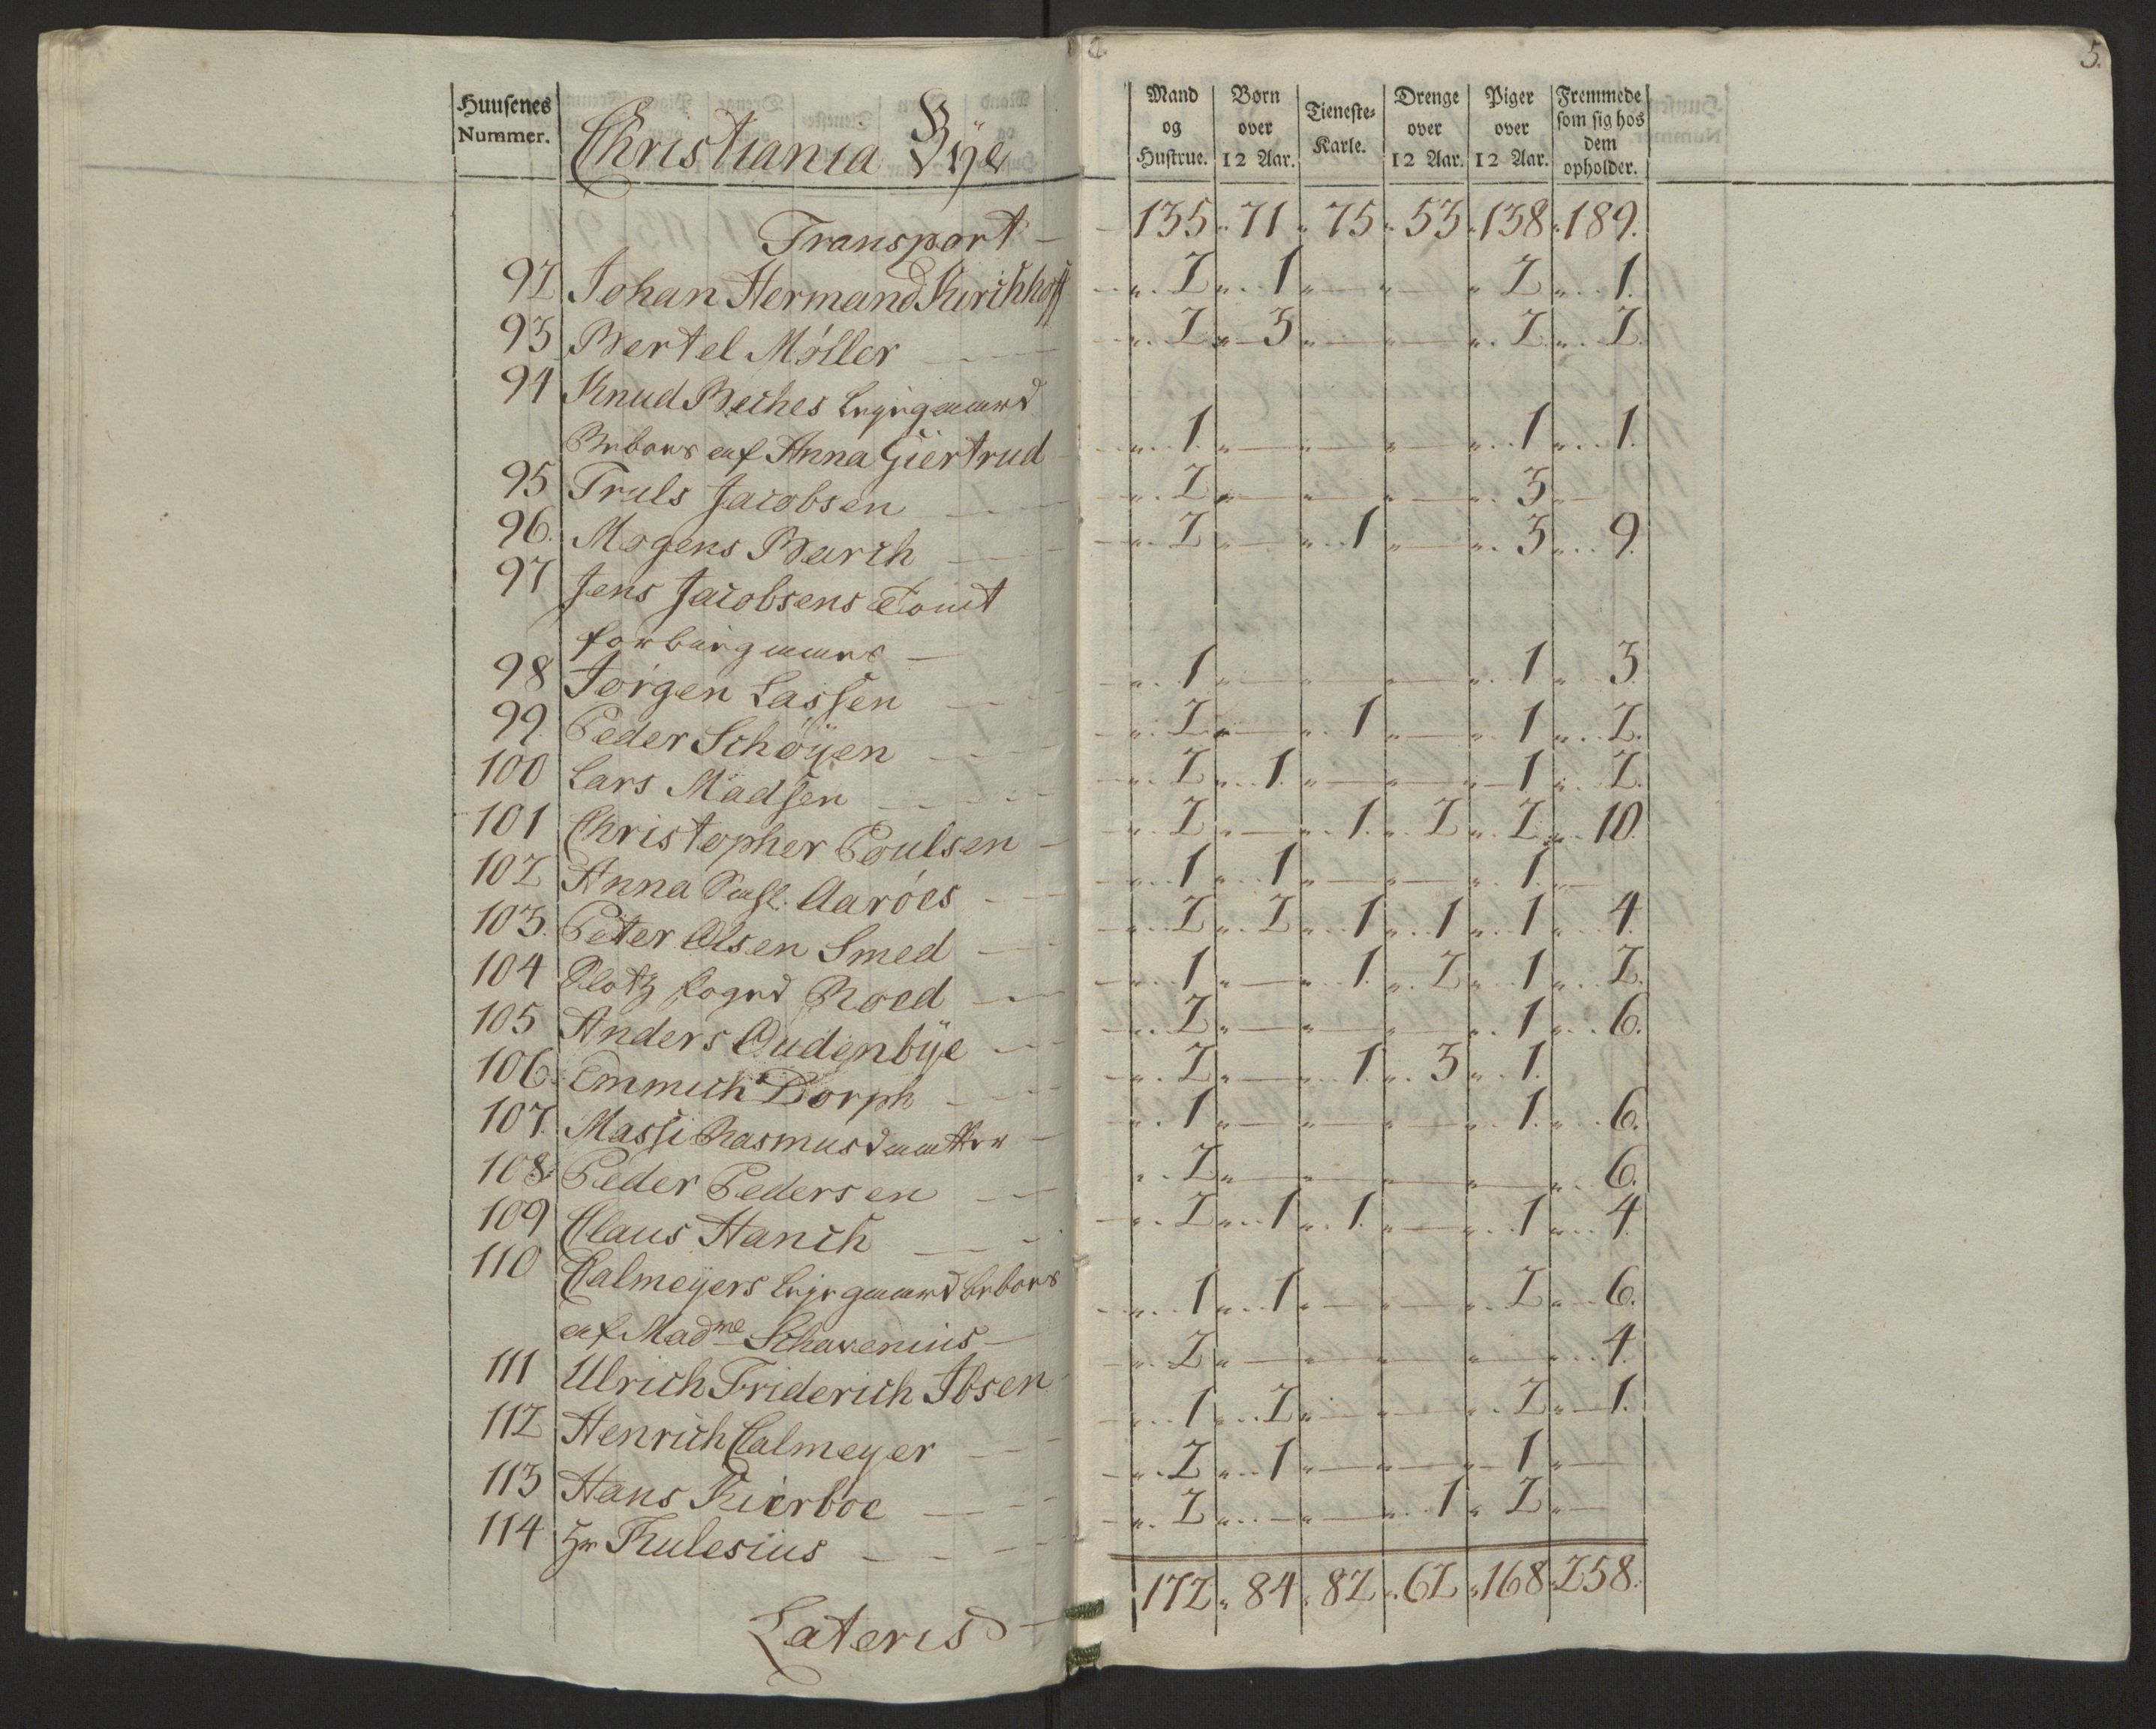 5.
Huusenes Nummer. Christiania Bÿe Mand og Hustrue. Børn over 12 Aar. Tieneste-Karle. Drenge over 12 Aar. Piger over 12 Aar. Fremmede som sig hos dem opholder.
Transport — 135 71 75 53 138 189.
92 Johan Hermand Kirchhoff 2 1 — — 2 1.
93 Bertel Möller 2 3 — — 2 2.
94 Knud Beches Leyegaard
Beboes af Anna Giertrud 1 — — — 1 1.
95 Truls Jacobsen 2 — — — 3 —
96. Mogens Barch 2 — 1 — 3 9.
97 Jens Jacobsens Tomt
98 Jörgen Lassen 1 — — — 1 3.
99. Peder Schöÿen 2 — 1 — 1 2.
100 Lars Madsen 2 1. — — 1 2.
101 Christopher Poulsen 2 — 1. 2 2 10.
102 Anna Aaröes 1 1 — — 1. —
103. Peter Olsen Smed 2 2 1 1 1 4.
104 Roed 1 — 1. 2 1 2.
105 Anders Oudenbÿe 2 — — — 1 6.
106 Emmich Dorph 2 — 1. 3 1.
107. Massi Rasmusdaatter 1 — — — 1. 6.
108. Peder Pedersen 2 — — — — 6.
109 Claus Hanch 2 1 1. — 1 4.
110 Calmeÿers Leyegaard beboes
af Madme Schavenius 1 1 — — 2 6.
111 Ulrich Friderich Ibsen 2 — — — — 4.
112 Henrich Calmeyer 1 2 — — 2 1.
113 Hans Kierboe 2 1 — — 1 —
114 Hr Thulesius 2 — — 1 2 —
Lateris 172 84 82 62 168 258.